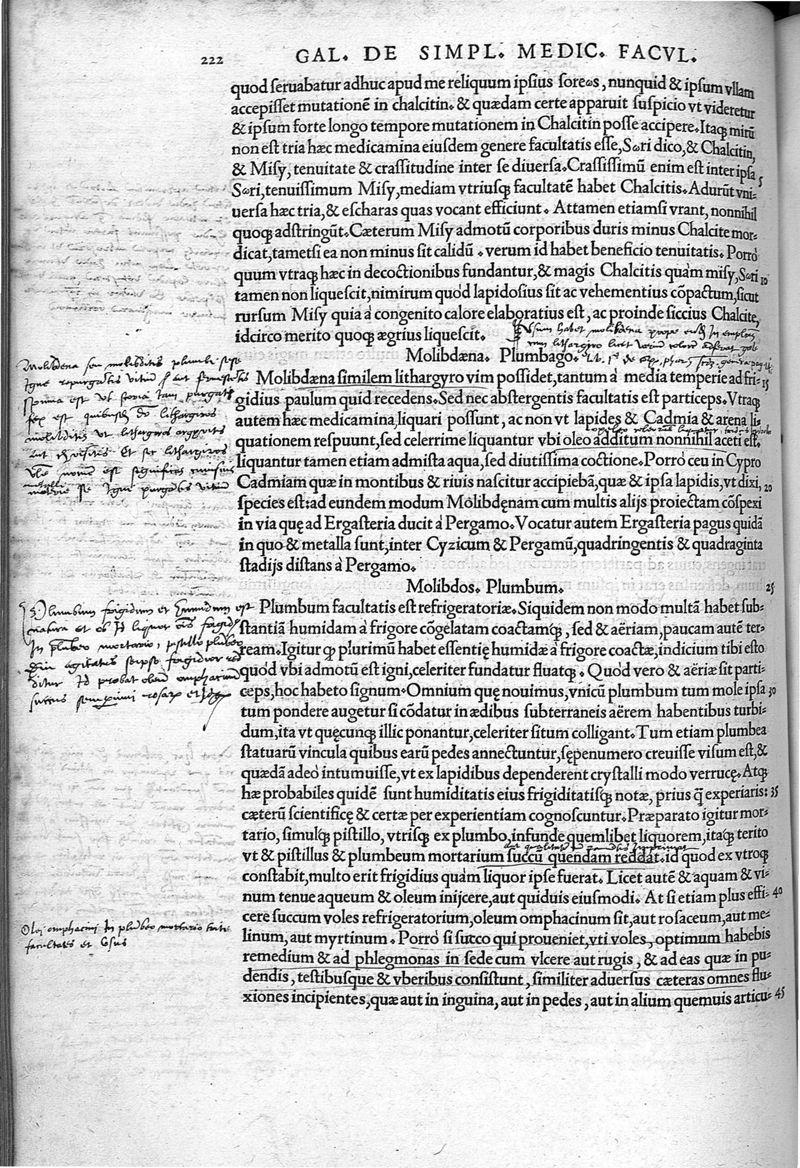 222
GAL. DE SIMPL. MEDIC. FACVL.
quod seruabatur adhuc apud me reliquum ipsius soreωs, nunquid & ipsum vllam
accepisset mutationē in chalcitin. & quædam certe apparuit suspicio vt videretur
& ipsum forte longo tempore mutationem in Chalcitin posse accipere. Itaq; mirū
non est tria hæc medicamina eiusdem genere facultatis esse, Sωri dico, & Chalcitin,
& Misy, tenuitate & crassitudine inter se diuersa. Crassissimū enim est inter ipsa
5
Sωri, tenuissimum Misy, mediam vtriusq; facultatē habet Chalcitis. Adurūt vni-
uersa hæc tria, & escharas quas vocant efficiunt. Attamen etiamsi vrant, nonnihil
quoq; adstringūt. Cæterum Misy admotū corporibus duris minus Chalcite mor-
dicat, tametsi ea non minus sit calidū. verum id habet beneficio tenuitatis. Porrò
quum vtraq; hæc in decoctionibus fundantur, & magis Chalcitis quàm misy, Sωri
10
tamen non liquescit, nimirum quòd lapidosius sit ac vehementius cōpactum, sicut
rursum Misy quia à congenito calore elaboratius est, ac proinde siccius Chalcite,
idcirco merito quoq; ægrius liquescit.
Molibdæna. Plumbago.
Molibdæna similem lithargyro vim possidet, tantum à media temperie ad fri-
15
gidius paulum quid recedens. Sed nec abstergentis facultatis est particeps. Vtraq;
autem hæc medicamina, liquari possunt, ac non vt lapides & Cadmia & arena li-
quationem respuunt, sed celerrime liquantur vbi oleo additum nonnihil aceti est.
liquantur tamen etiam admista aqua, sed diutissima coctione. Porrò ceu in Cypro
Cadmiam quæ in montibus & riuis nascitur accipiebā, quæ & ipsa lapidis, vt dixi,
20
species est: ad eundem modum Molibdęnam cum multis alijs proiectam cōspexi
in via quę ad Ergasteria ducit à Pergamo. Vocatur autem Ergasteria pagus quidā
in quo & metalla sunt, inter Cyzicum & Pergamū, quadringentis & quadraginta
stadijs distans à Pergamo.
Molibdos. Plumbum.
25
Plumbum facultatis est refrigeratoriæ. Siquidem non modo multā habet sub-
stantiā humidam à frigore cōgelatam coactamq;, sed & aëriam, paucam autē ter-
ream. Igitur q̱ plurimū habet essentię humidæ à frigore coactæ, indicium tibi esto
quòd vbi admotū est igni, celeriter fundatur fluatq;. Quòd vero & aëriæ sit parti-
ceps, hoc habeto signum. Omnium quę nouimus, vnicū plumbum tum mole ipsa
30
tum pondere augetur si cōdatur in ædibus subterraneis aërem habentibus turbi-
dum, ita vt quęcunq; illic ponantur, celeriter situm colligant. Tum etiam plumbea
statuarū vincula quibus earū pedes annectuntur, sępenumero creuisse visum est, &
quædā adeo intumuisse, vt ex lapidibus dependerent crystalli modo verrucę. Atq;
hæ probabiles quidē sunt humiditatis eius frigiditatisq; notæ, prius q̄ experiaris:
35
cæterū scientificę & certæ per experientiam cognoscuntur. Præparato igitur mor-
tario, simulq; pistillo, vtrisq; ex plumbo, infunde quemlibet liquorem, itaq; terito
vt & pistillus & plumbeum mortarium succū quendam reddat. id quod ex vtroq;
constabit, multo erit frigidius quàm liquor ipse fuerat. Licet autē & aquam & vi-
num tenue aqueum & oleum inijcere, aut quiduis eiusmodi. At si etiam plus effi-
40
cere succum voles refrigeratorium, oleum omphacinum sit, aut rosaceum, aut me-
linum, aut myrtinum. Porrò si succo qui proueniet, vti voles, optimum habebis
remedium & ad phlegmonas in sede cum vlcere aut rugis, & ad eas quæ in pu-
dendis, testibusque & vberibus consistunt, similiter aduersus cæteras omnes flu-
xiones incipientes, quæ aut in inguina, aut in pedes, aut in alium quemuis articu-
45